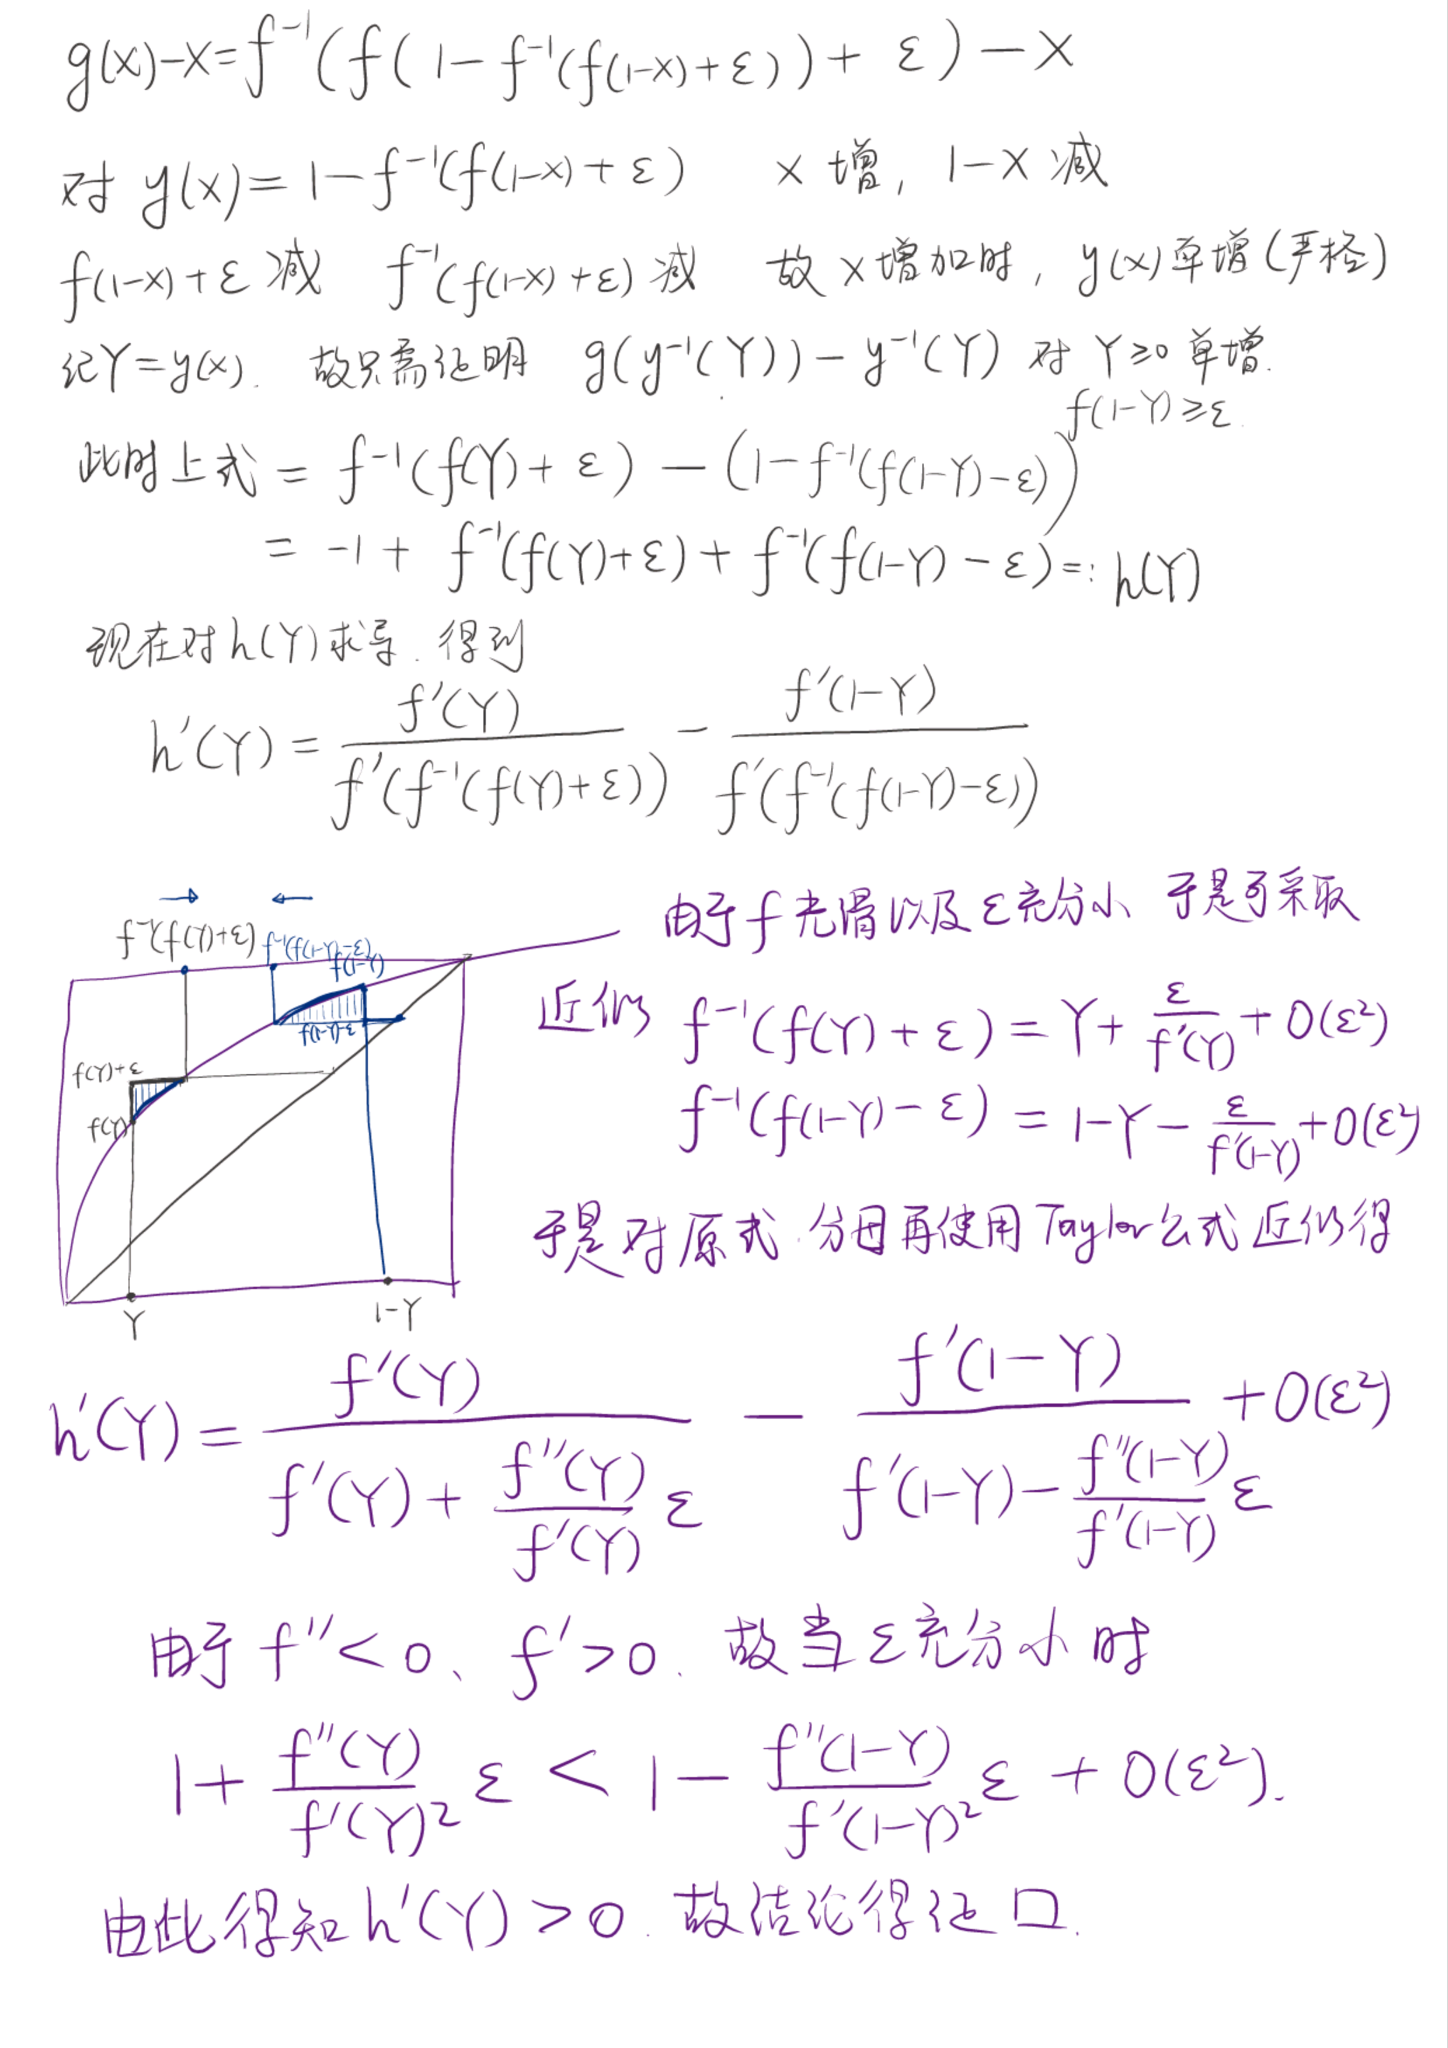 g(x)-x=f⁻¹(f(1-f⁻¹(f(1-x)+ε))+ε)-x
对 y(x)=1-f⁻¹(f(1-x)+ε) x 增, 1-x 减
f(1-x)+ε 减 f⁻¹(f(1-x)+ε) 减 故 x 增加时, y(x) 单增(严格)
记Y=y(x). 故只需证明 g(y⁻¹(Y))-y⁻¹(Y) 对 Y≥0 单增.
f(1-Y)≥ε.
此时上式 = f⁻¹(f(Y)+ε)-(1-f⁻¹(f(1-Y)-ε))
= -1+f⁻¹(f(Y)+ε)+f⁻¹(f(1-Y)-ε)=: h(Y)
现在对h(Y)求导. 得到
h'(Y) = f'(Y)/f'(f⁻¹(f(Y)+ε)) - f'(1-Y)/f'(f⁻¹(f(1-Y)-ε))
f⁻¹(f(Y)+ε) f⁻¹(f(1-Y)-ε)
f(1-Y)
f(1-Y)-ε
f(Y)+ε
f(Y)
Y
1-Y
由于f光滑以及ε充分小 于是可采取
近似 f⁻¹(f(Y)+ε) = Y+ε/f'(Y)+O(ε²)
f⁻¹(f(1-Y)-ε) = 1-Y-ε/f'(1-Y)+O(ε²)
于是对原式.分母再使用Taylor公式近似得
h'(Y) = f'(Y)/(f'(Y)+(f''(Y)/f'(Y))ε) - f'(1-Y)/(f'(1-Y)-(f''(1-Y)/f'(1-Y))ε) + O(ε²)
由于 f''<0、f'>0. 故当ε充分小时
1+(f''(Y)/f'(Y)²)ε < 1-(f''(1-Y)/f'(1-Y)²)ε+O(ε²).
由此得知 h'(Y)>0. 故结论得证 □.